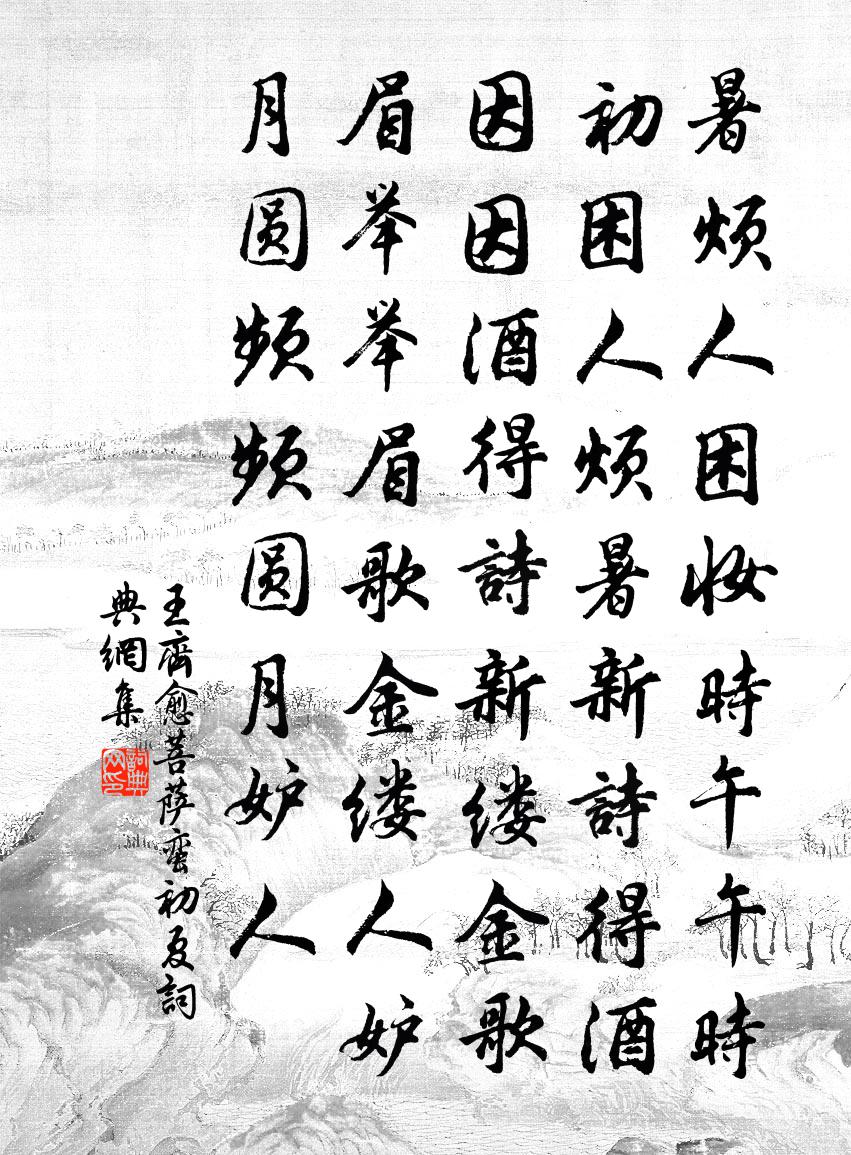 暑烦人困妆時午午時
初困人烦暑新詩得酒
因因酒得詩新缕金歌
眉举举眉歌金缕人妒
月圆频频圆月妒人
王齊愈菩萨蛮初夏詞
典網集
詞典網印